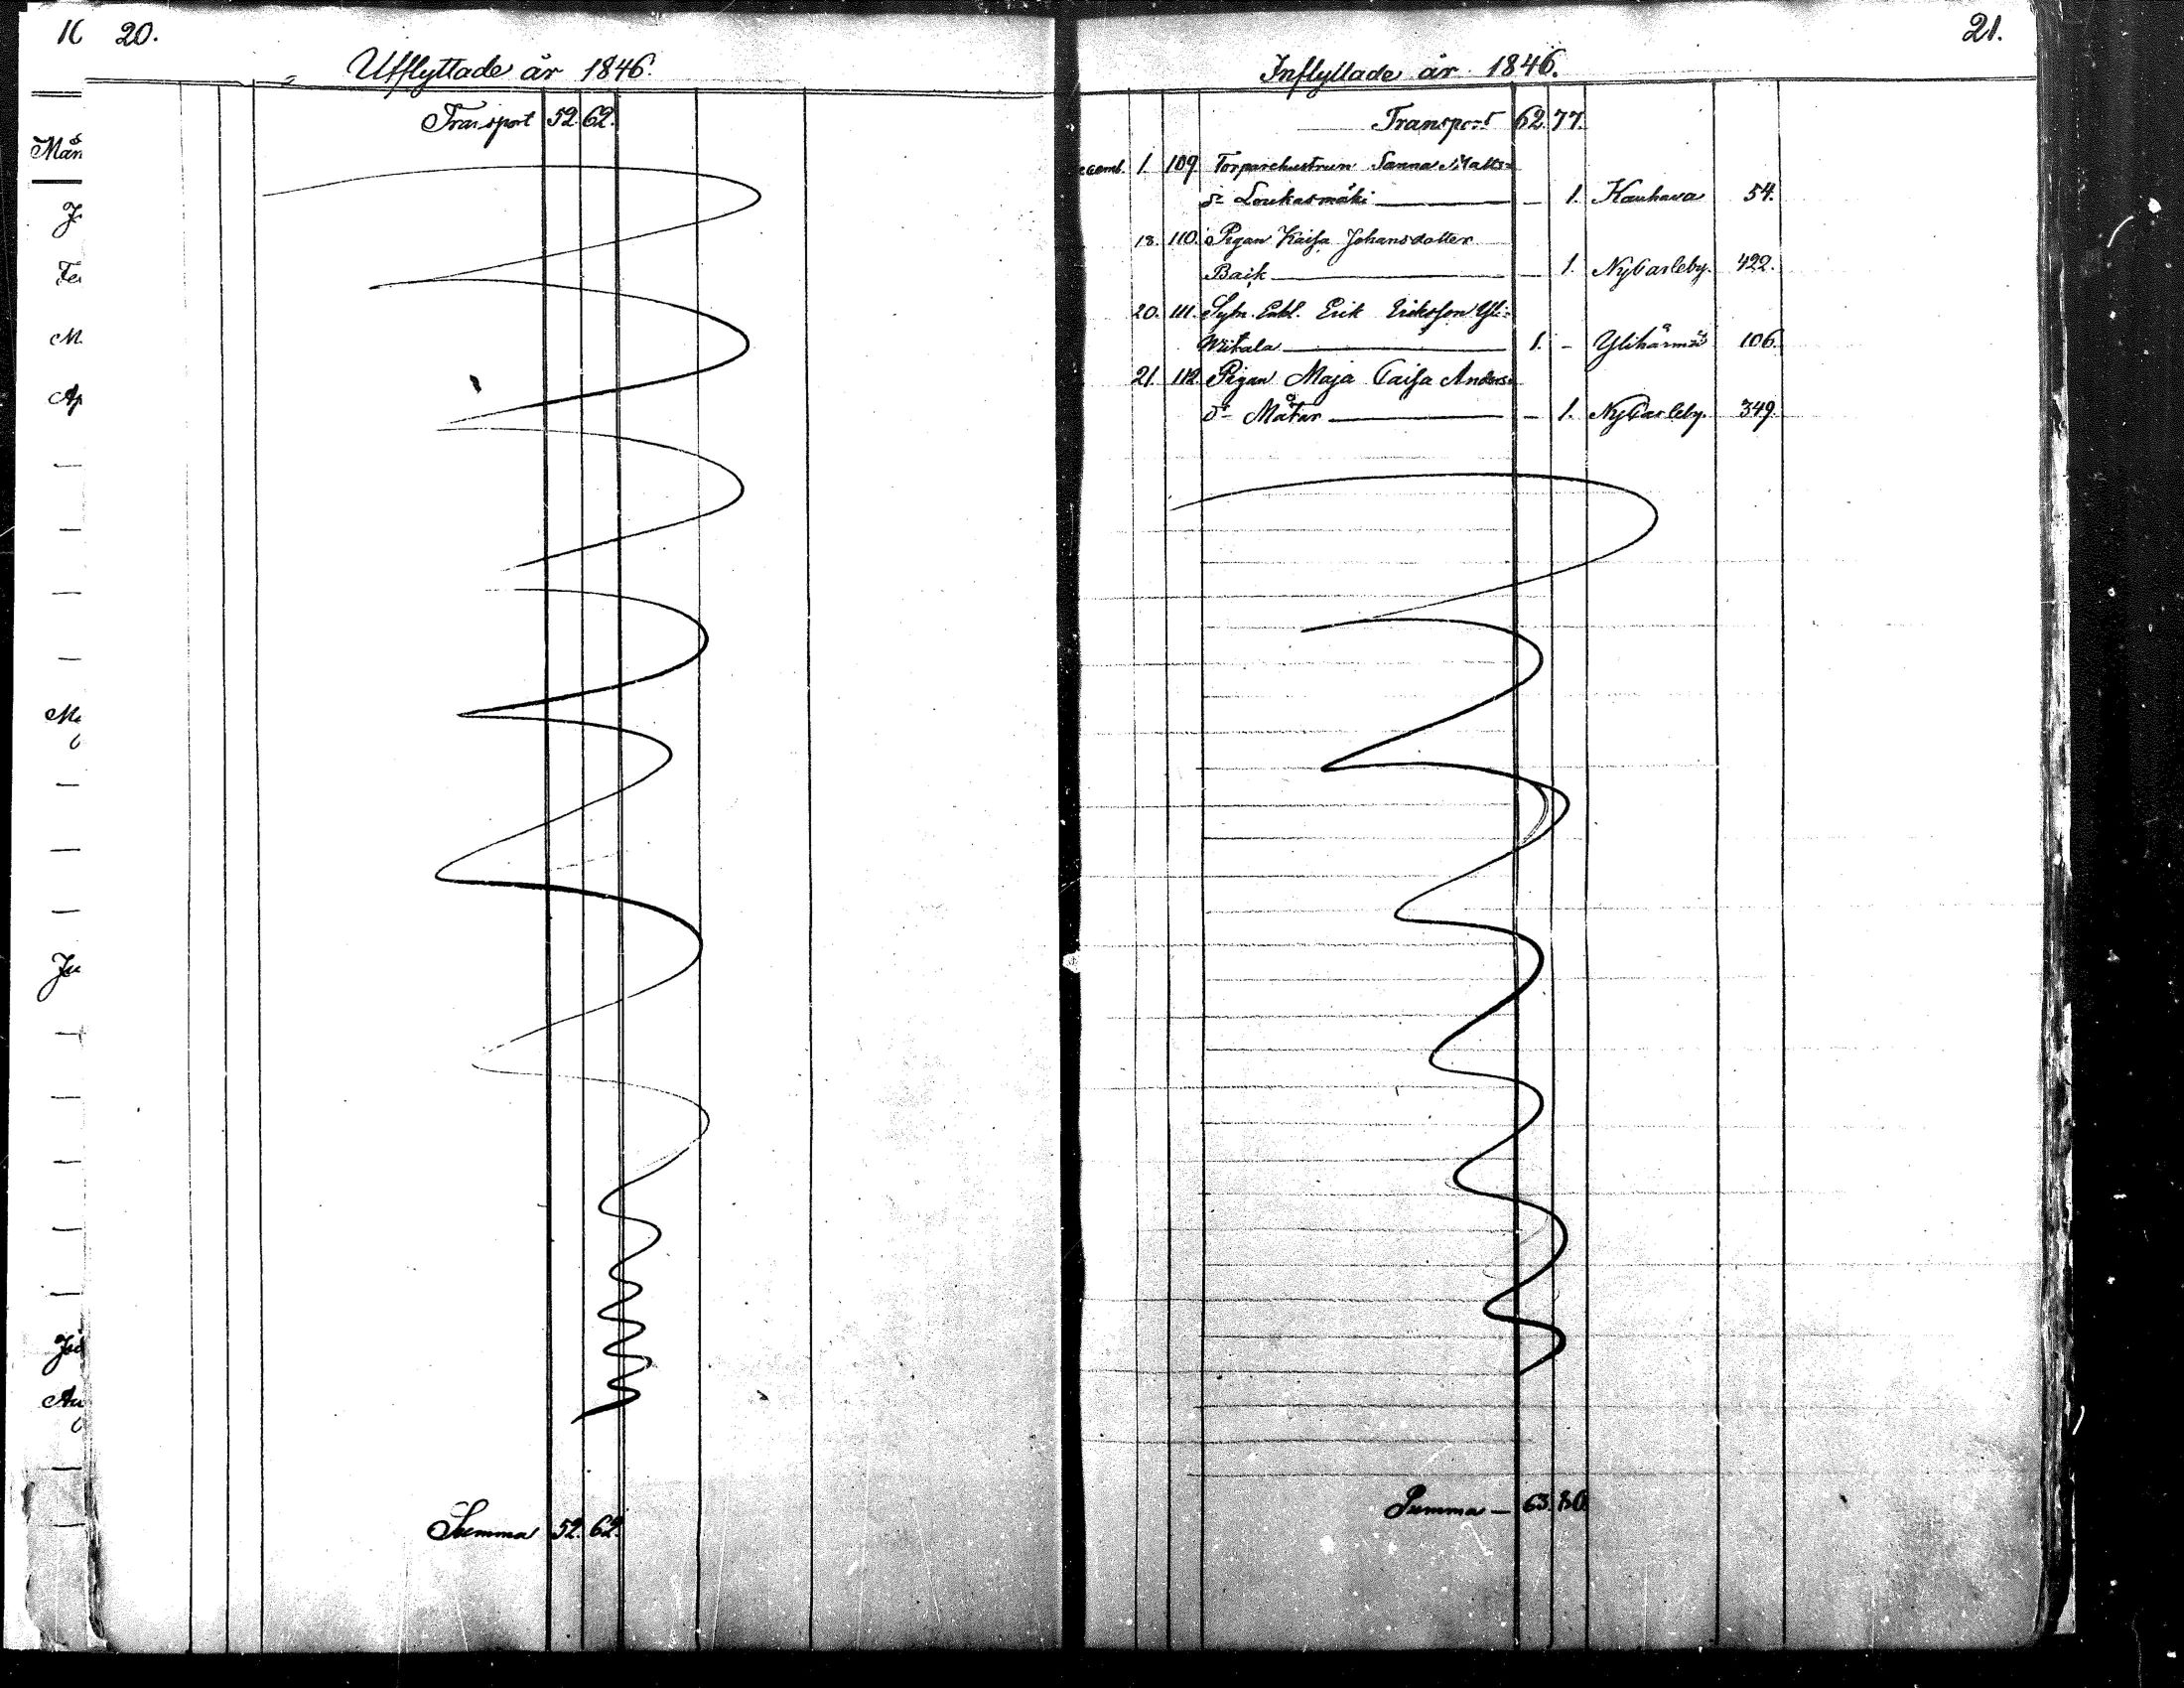 20.
Utflyttade år 1846.
Transport 52. 62.
Summa 52. 62.
21.
Inflyttade år 1846.
Transport 62. 77.
1. 109. Torparehustrun Sanna Matts-
dr Loukasmäki — 1. Kauhava 54.
18. 110. Pigan Kaisa Johansdotter
Back — 1. NyCarleby. 422.
20. 111. Erik Eriksson Yli-
Witala 1. — Ylihärmä 106.
21. 112. Pigan Maja Caisa Anders-
dr Måtar — 1. NyCarleby. 349.
Summa — 63. 80.